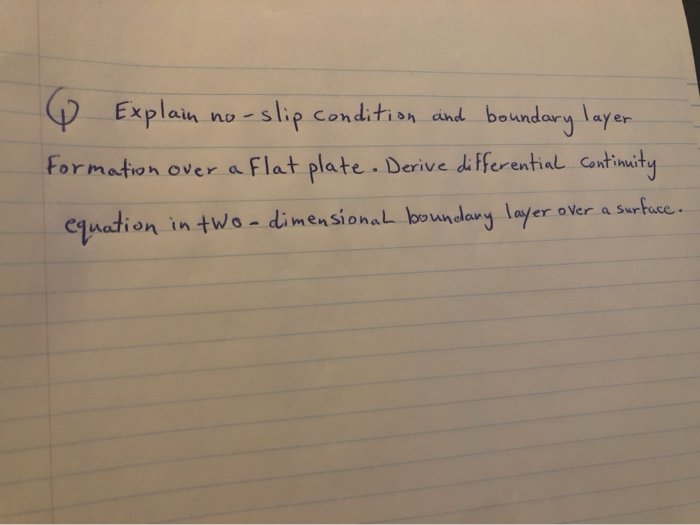 Q Explain no-slip condition and boundary layer
Formation over a flat plate. Derive differential continuity
equation in two-dimensional boundary layer over a surface.